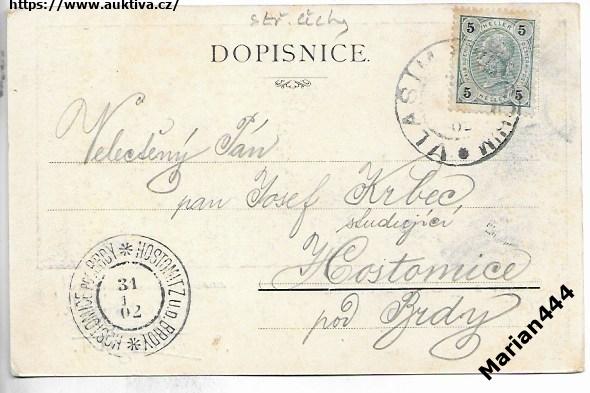 https://www.auktiva.cz/
stř. čechy
DOPISNICE.
5 HELLER 5
5 HELLER 5
VLASIM
Velectěný Pán
pan Josef Krbec
studující
Hostomice
pod Brdy
HOSTOMICE POD BRDY * HOSTOMITZ U.D. BRDY *
31
1
02
Marian444